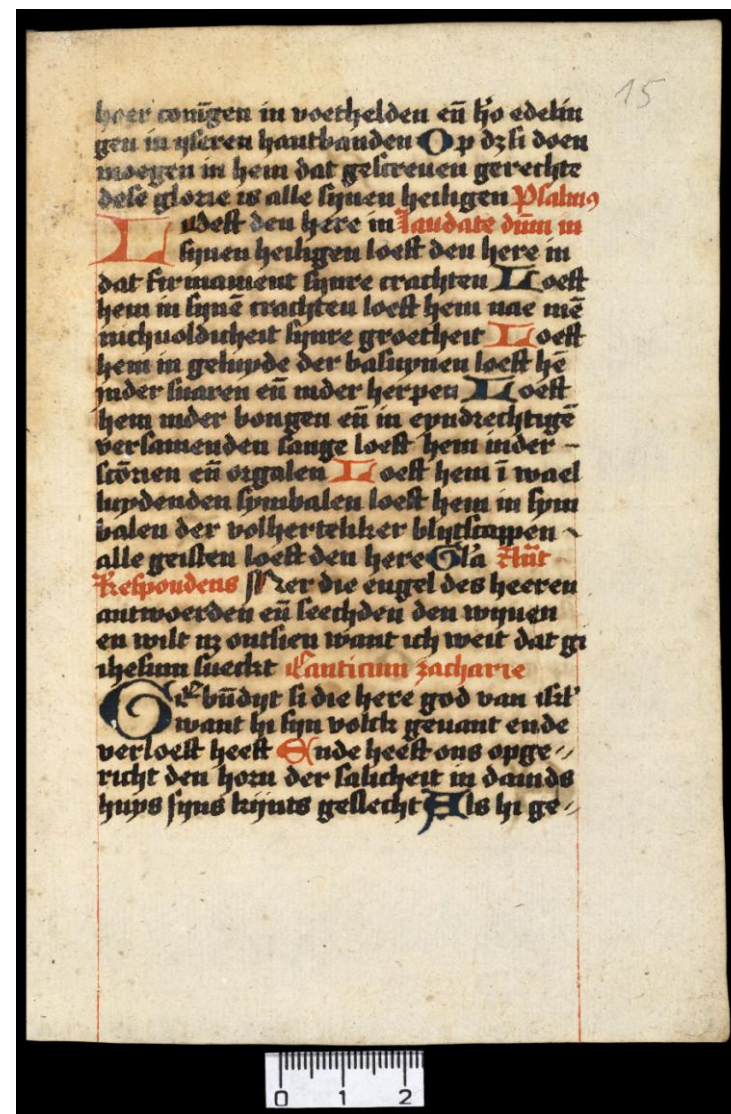 15
hoer conīgen in voethelden eñ ho edelin
gen in yseren hantbanden Op dz si doen
moegen in hem dat gescreuen gerechte
dese glorie is alle synen heiligen Psalmꝯ
Loest den here in laudate dñm in
synen heiligen loest den here in
dat firmament synre crachten Loest
hem in synē crachten loest hem nae mē
nichuoldicheit synre groetheit Loest
hem in geluyde der basuynen loest hē
inder snaren eñ inder herpen Loest
hem inder bongen eñ in eyndrechtigē
versamenden sange loest hem inder -
snōrien eñ orgalen Loest hem ī wael
luydenden symbalen loest hem in sym
balen der volherteliker blytscappen
alle geisten loest den here Gl'a Añt
Respondens Mer die engel des heeren
antwoerden eñ seechden den wyuen
en wilt nz ontsien want ich weit dat gi
ihesum sueckt Canticum zacharie
Gebn̄dyt si die here god van isrl'
want hi syn volck geuant ende
verloest heeft Ende heeft ons opge//
richt den horn der salicheit in dauids
huys syns kijnts geslecht Als hi ge//
0 1 2